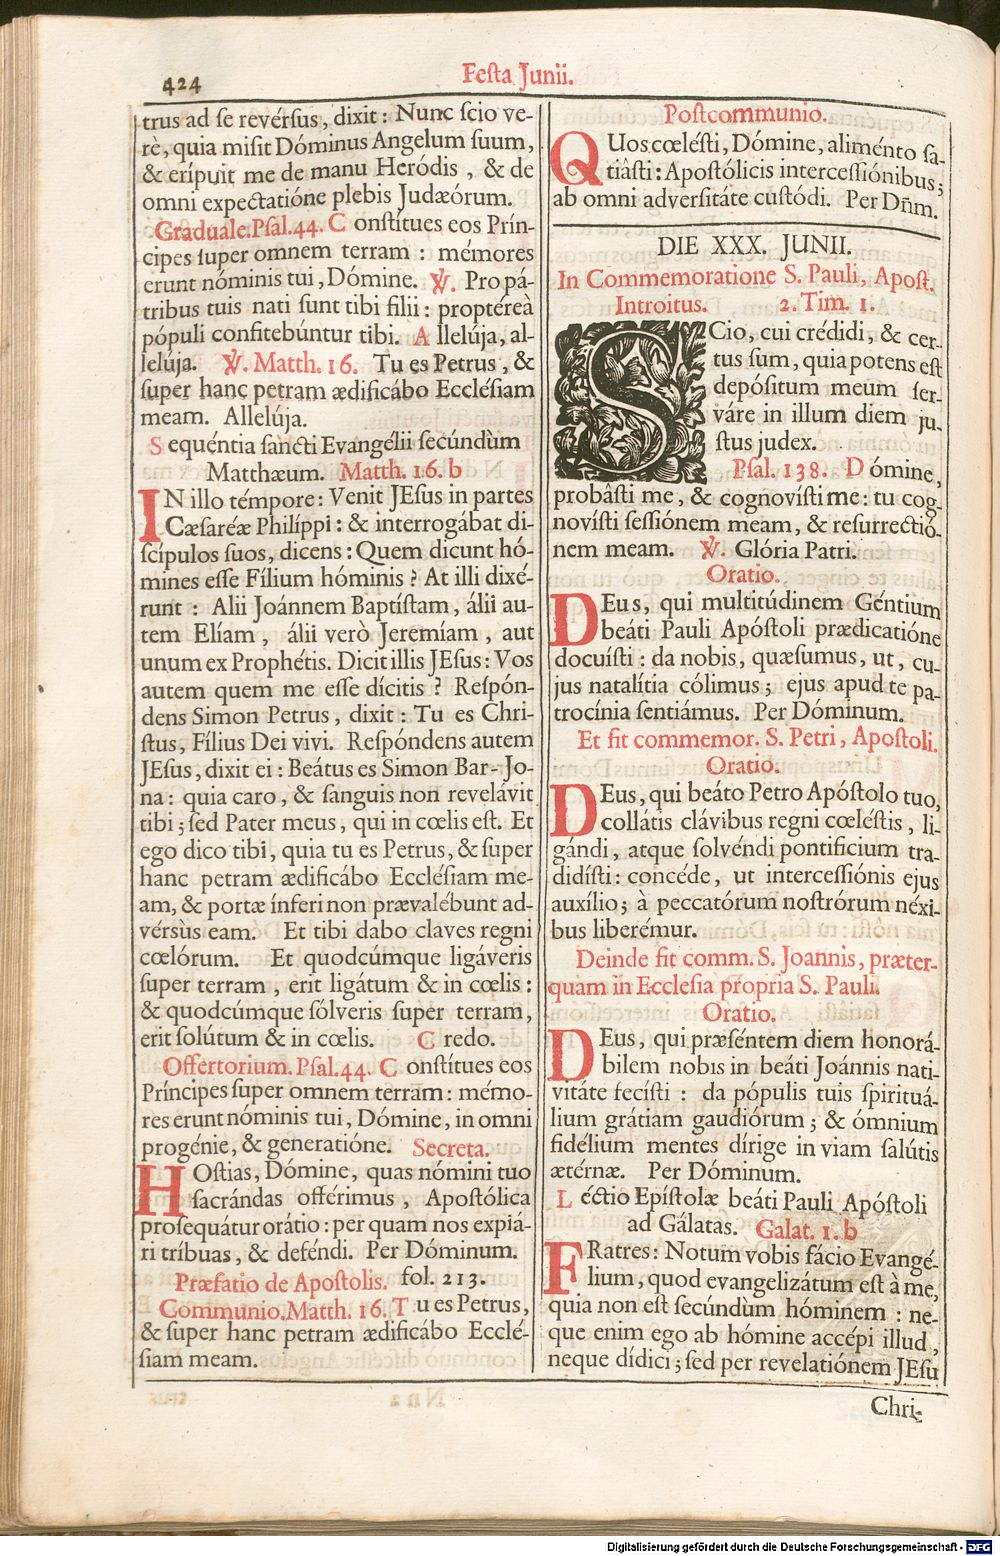 424
Festa Junii.
trus ad se revérsus, dixit: Nunc scio ve-
rè, quia misit Dóminus Angelum suum,
& erípuit me de manu Heródis, & de
omni expectatióne plebis Judæórum.
Graduale. Psal. 44. Constítues eos Prín-
cipes super omnem terram: mémores
erunt nóminis tui, Dómine. ℣. Pro pá-
tribus tuis nati sunt tibi filii: proptéreà
pópuli confitebúntur tibi. Allelúja, al-
lelúja. ℣. Matth. 16. Tu es Petrus, &
super hanc petram ædificábo Ecclésiam
meam. Allelúja.
Sequéntia sancti Evangélii secúndùm
Matthæum. Matth. 16. b
IN illo témpore: Venit JEsus in partes
Cæsaréæ Philíppi: & interrogábat di-
scípulos suos, dicens: Quem dicunt hó-
mines esse Fílium hóminis? At illi dixé-
runt: Alii Joánnem Baptístam, álii au-
tem Elíam, álii verò Jeremíam, aut
unum ex Prophétis. Dicit illis JEsus: Vos
autem quem me esse dícitis? Respón-
dens Simon Petrus, dixit: Tu es Chri-
stus, Fílius Dei vivi. Respóndens autem
JEsus, dixit ei: Beátus es Simon Bar-Jo-
na: quia caro, & sanguis non revelávit
tibi; sed Pater meus, qui in cœlis est. Et
ego dico tibi, quia tu es Petrus, & super
hanc petram ædificábo Ecclésiam me-
am, & portæ ínferi non prævalébunt ad-
vérsùs eam. Et tibi dabo claves regni
cœlórum. Et quodcúmque ligáveris
super terram, erit ligátum & in cœlis:
& quodcúmque sólveris super terram,
erit solútum & in cœlis. Credo.
Offertorium. Psal. 44. Constítues eos
Príncipes super omnem terram: mémo-
res erunt nóminis tui, Dómine, in omni
progénie, & generatióne. Secreta.
HOstias, Dómine, quas nómini tuo
sacrándas offérimus, Apostólica
prosequátur orátio: per quam nos expiá-
ri tríbuas, & deféndi. Per Dóminum.
Præfatio de Apostolis. fol. 213.
Communio. Matth. 16. Tu es Petrus,
& super hanc petram ædificábo Ecclé-
siam meam.
Postcommunio.
QUos cœlésti, Dómine, aliménto sa-
tiâsti: Apostólicis intercessiónibus;
ab omni adversitáte custódi. Per Dñm.
DIE XXX. JUNII.
In Commemoratione S. Pauli, Apost.
Introitus. 2. Tim. 1.
SCio, cui crédidi, & cer-
tus sum, quia potens est
depósitum meum ser-
váre in illum diem ju-
stus judex.
Psal. 138. Dómine,
probâsti me, & cognovísti me: tu cog-
novísti sessiónem meam, & resurrectió-
nem meam. ℣. Glória Patri.
Oratio.
DEus, qui multitúdinem Géntium
beáti Pauli Apóstoli prædicatióne
docuísti: da nobis, quæsumus, ut, cu-
jus natalítia cólimus; ejus apud te pa-
trocínia sentiámus. Per Dóminum.
Et fit commemor. S. Petri, Apostoli.
Oratio.
DEus, qui beáto Petro Apóstolo tuo,
collátis clávibus regni cœléstis, li-
gándi, atque solvéndi pontifícium tra-
didísti: concéde, ut intercessiónis ejus
auxílio; à peccatórum nostrórum néxi-
bus liberémur.
Deinde fit comm. S. Joannis, præter-
quam in Ecclesia propria S. Pauli.
Oratio.
DEus, qui præséntem diem honorá-
bilem nobis in beáti Joánnis nati-
vitáte fecísti: da pópulis tuis spirituá-
lium grátiam gaudiórum; & ómnium
fidélium mentes dírige in viam salútis
ætérnæ. Per Dóminum.
Léctio Epístolæ beáti Pauli Apóstoli
ad Gálatas. Galat. 1. b
FRatres: Notum vobis fácio Evangé-
lium, quod evangelizátum est à me,
quia non est secúndùm hóminem: ne-
que enim ego ab hómine accépi illud,
neque dídici; sed per revelatiónem JEsu
Chri-
Digitalisierung gefördert durch die Deutsche Forschungsgemeinschaft - DFG